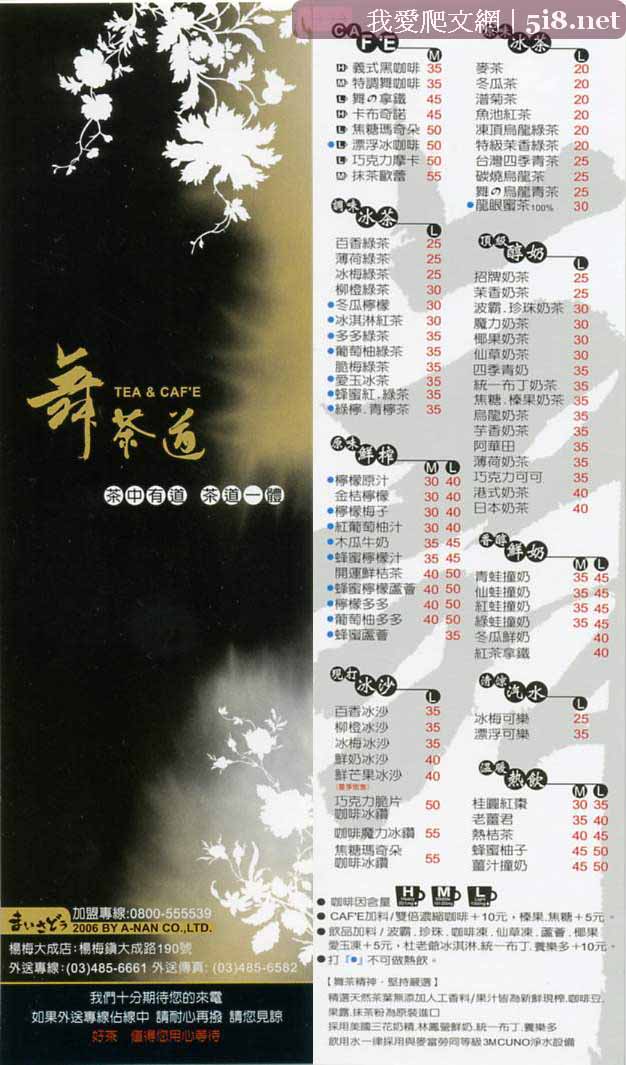 我愛爬文網 | 5i8.net
TEA & CAF'E
舞茶道
茶中有道 茶道一體
まいさどう
加盟專線:0800-555539
2006 BY A-NAN CO.,LTD.
楊梅大成店:楊梅鎮大成路190號
外送專線:(03)485-6661 外送傳真:(03)485-6582
我們十分期待您的來電
如果外送專線佔線中 請耐心再撥 請您見諒
好茶 值得您用心等待
CAF'E
M
H 義式黑咖啡 35
M 特調舞咖啡 35
L 舞の拿鐵 45
H 卡布奇諾 45
L 焦糖瑪奇朵 50
●L 漂浮冰咖啡 50
L 巧克力摩卡 50
M 抹茶歐蕾 55
調味冰茶
L
百香綠茶 25
薄荷綠茶 25
冰梅綠茶 25
柳橙綠茶 30
●冬瓜檸檬 30
●冰淇淋紅茶 30
●多多綠茶 35
●葡萄柚綠茶 35
脆梅綠茶 35
●愛玉冰茶 35
●蜂蜜紅.綠茶 35
●綠檸.青檸茶 35
原味鮮榨
M L
●檸檬原汁 30 40
金桔檸檬 30 40
●檸檬梅子 30 40
●紅葡萄柚汁 30 40
●木瓜牛奶 35 45
●蜂蜜檸檬汁 35 45
開運鮮桔茶 40 50
●蜂蜜檸檬蘆薈 40 50
●檸檬多多 40 50
●葡萄柚多多 40 50
●蜂蜜蘆薈 35
現打冰沙
L
百香冰沙 35
柳橙冰沙 35
冰梅冰沙 35
鮮奶冰沙 40
鮮芒果冰沙 40
巧克力脆片
咖啡冰鑽 50
咖啡魔力冰鑽 55
焦糖瑪奇朵
咖啡冰鑽 55
冰茶
L
麥茶 20
冬瓜茶 20
潽菊茶 20
魚池紅茶 20
凍頂烏龍綠茶 20
特級茉香綠茶 20
台灣四季青茶 25
碳燒烏龍茶 25
舞の烏龍青茶 25
●龍眼蜜茶100% 30
頂級醇奶
L
招牌奶茶 25
茉香奶茶 25
波霸.珍珠奶茶 30
魔力奶茶 30
椰果奶茶 30
仙草奶茶 30
四季青奶 35
統一布丁奶茶 35
焦糖.榛果奶茶 35
烏龍奶茶 35
芋香奶茶 35
阿華田 35
薄荷奶茶 35
巧克力可可 35
港式奶茶 40
日本奶茶 40
香醇鮮奶
M L
青蛙撞奶 35 45
仙蛙撞奶 35 45
紅蛙撞奶 35 45
綠蛙撞奶 35 45
冬瓜鮮奶 40
紅茶拿鐵 40
清涼汽水
L
冰梅可樂 25
漂浮可樂 35
溫暖熱飲
M L
桂圓紅棗 30 35
老薑君 35 40
熱桔茶 40 45
蜂蜜柚子 45 50
薑汁撞奶 45 50
● 咖啡因含量 H M L
● CAF'E加料/雙倍濃縮咖啡+10元，榛果.焦糖+5元。
● 飲品加料/波霸.珍珠.咖啡凍.仙草凍.蘆薈.椰果.
愛玉凍+5元，杜老爺冰淇淋.統一布丁.養樂多+10元。
● 打『●』不可做熱飲。
【舞茶精神，堅持嚴選】
精選天然茶葉無添加人工香料/果汁皆為新鮮現榨.咖啡豆.
果露.抹茶粉為原裝進口
採用美國三花奶精.林鳳營鮮奶.統一布丁.養樂多
飲用水一律採用與麥當勞同等級3MCUNO淨水設備